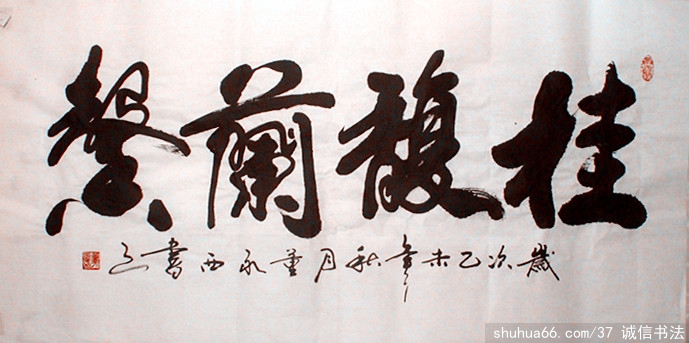 桂馥蘭馨
歲次乙未年秋月董永西書之
shuhua66.com/37 诚信书法